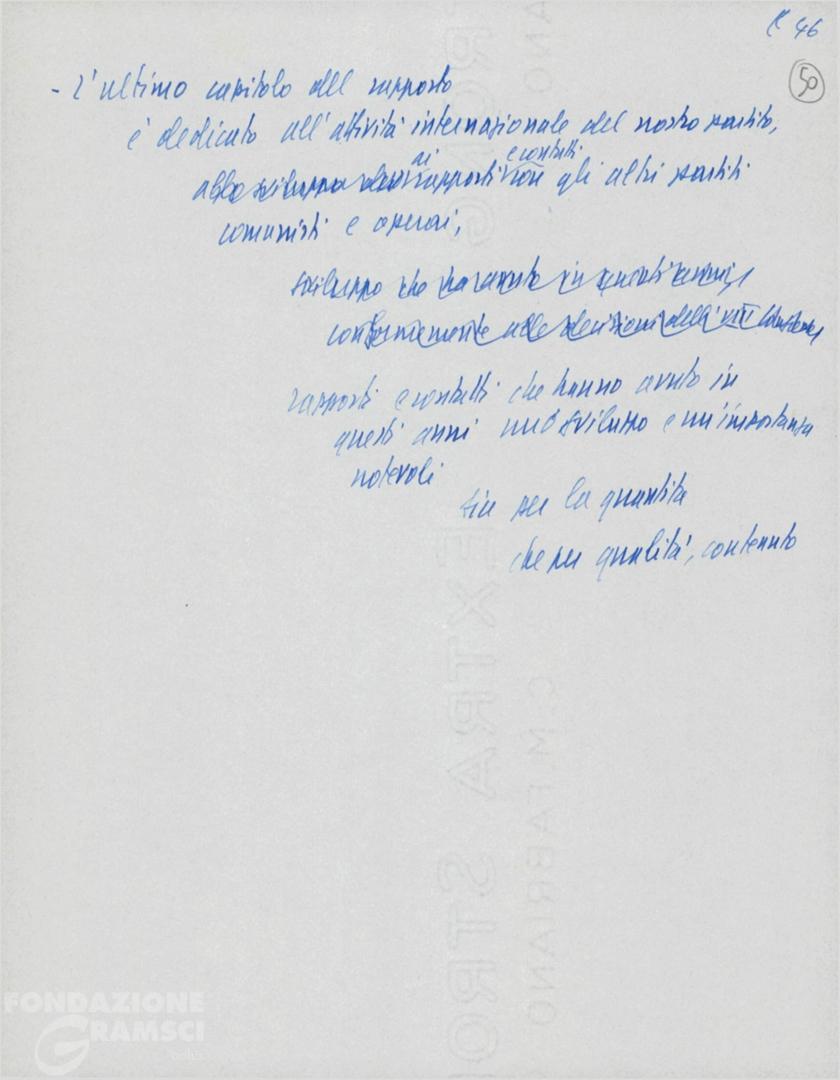 R 46
50
- L'ultimo capitolo del rapporto
è dedicato all'attività internazionale del nostro partito,
ai e contatti
allo sviluppo dei rapporti con gli altri partiti
comunisti e operai,
sviluppo che ha avuto in questi anni,
conformemente alle decisioni dell'VIII
rapporti e contatti che hanno avuto in
questi anni uno sviluppo e un'importanza
notevoli
sia per la quantità
che per qualità, contenuto
EXTRA STRONG
C.M. FABRIANO
FONDAZIONE
GRAMSCI